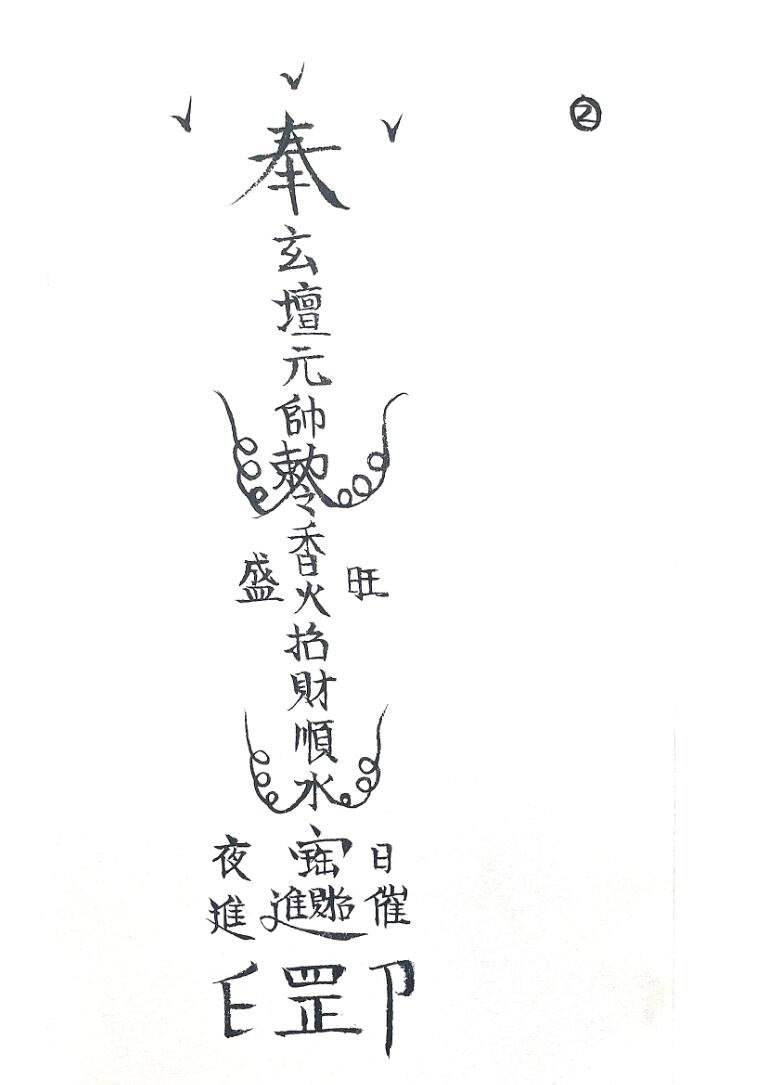 ②
奉玄壇元帥勅令香火招財順水
旺
盛
日催
招財進寶
夜進
罡